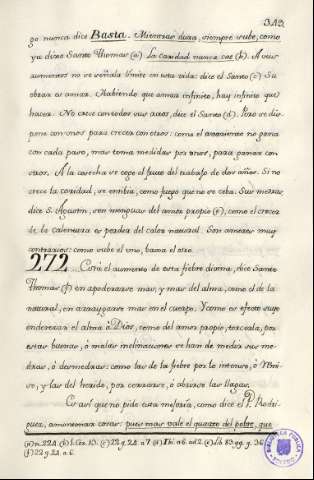 312.
go nunca dice Basta. Mientras dura, siempre sube, como
ya dixo Santo Thomas (a) La caridad nunca cae (b). A sus
aumentos no se señala limite en esta vida: dice el Santo (c) Su
obrar es amar. Habiendo que amar infinito, hay infinito que
hacer. No crece con todos sus actos, dice el Santo (d). Pero se dis-
pone con unos para crecer con otros: como el
con cada paso, mas toma medidas por unos, para ganar con
otros. A la cosecha se coge el fruto del trabajo de dos años. Si no
crece la caridad, se entibia, como fuego que no se ceba. Sus
dice S. Agustin, son menguas del amor propio (e), como el crecer
de la calentura es perder del calor natural. Son amores muy
contrarios: como sube el uno, baxa el otro.
272 Con el aumento de esta fiebre divina, dice Santo
Thomas (f) en apoderarse mas, y mas del alma, como el de la
natural, en arraygarse mas en el cuerpo. Y como es efecto suyo
enderezar el alma à Dios, como del amor propio, torcerla, por
estas buenas, ò malas inclinaciones se han de medir sus me-
dras, ò desmedras: como las de la fiebre por lo intenso, ò
vo, y las del herido, por cerrarse, ò abrirse las llagas.
Es asi que no pide esta mejoría, como dice el P. Rodri-
guez, amontonar cosas: pues mas vale el quarto del pobre, que
(a) n. 228. (b) 1. Cor. 13. (c) 22 q. 24. a. 7. (d) Ibi. a 6. ad 2. (e) Lib. 83. qq. q. 36.
(f) 22 q. 24. a. 6.
BIBLIOTECA PUBLICA